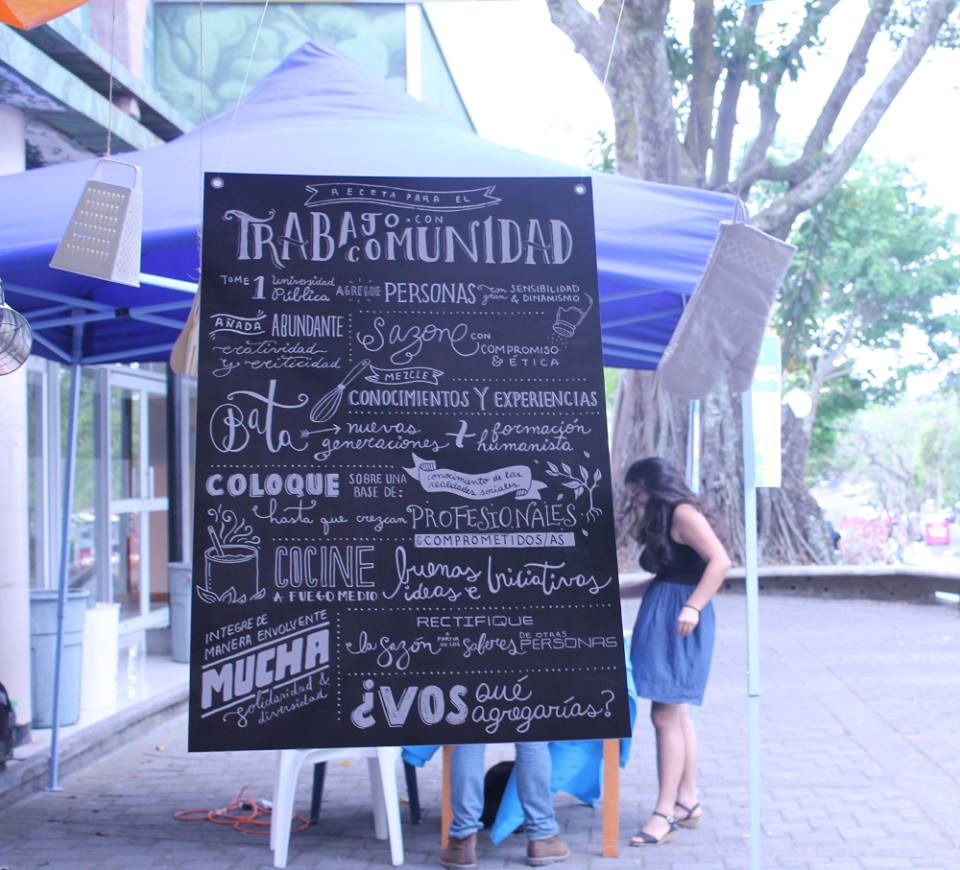 RECETA PARA EL
TRABAJO CON COMUNIDAD
TOME 1 Universidad Pública AGREGUE PERSONAS con gran SENSIBILIDAD & DINAMISMO
AÑADA ABUNDANTE
creatividad
y criticidad
Sazone CON
COMPROMISO
& ÉTICA
MEZCLE
CONOCIMIENTOS Y EXPERIENCIAS
Bata → nuevas generaciones + formación humanista
COLOQUE SOBRE UNA BASE DE: conocimiento de las realidades sociales
hasta que crezcan PROFESIONALES
COMPROMETIDOS/AS
COCINE
A FUEGO MEDIO
buenas ideas e Iniciativas
INTEGRE DE
MANERA ENVOLVENTE
MUCHA
solidaridad &
diversidad
RECTIFIQUE
la Sazón A PARTIR DE LOS Saberes DE OTRAS PERSONAS
¿VOS qué agregarías?